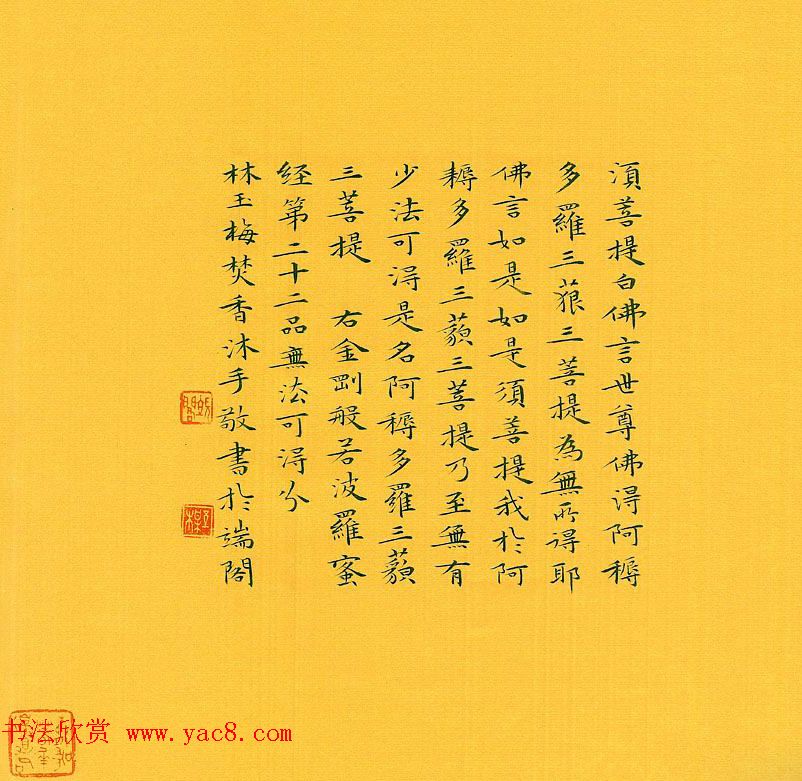 須菩提白佛言世尊佛得阿耨
多羅三藐三菩提為無所得耶
佛言如是如是須菩提我於阿
耨多羅三藐三菩提乃至無有
少法可得是名阿耨多羅三藐
三菩提 右金剛般若波羅蜜
経第二十二品無法可得分
林玉梅焚香沐手敬書於端閣
书法欣赏 www.yac8.com